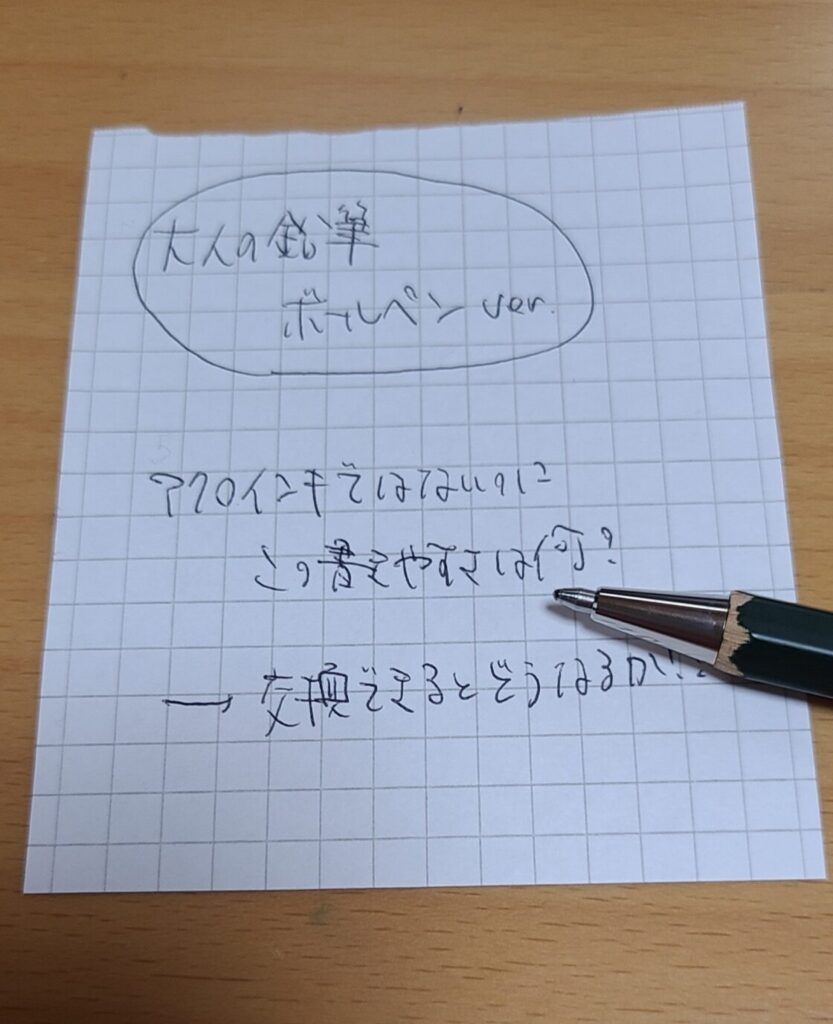 大人の鉛筆
ボールペン ver.
アクロインキではないのに
この書きやすさは何?
→ 交換できるとどうなるか!?